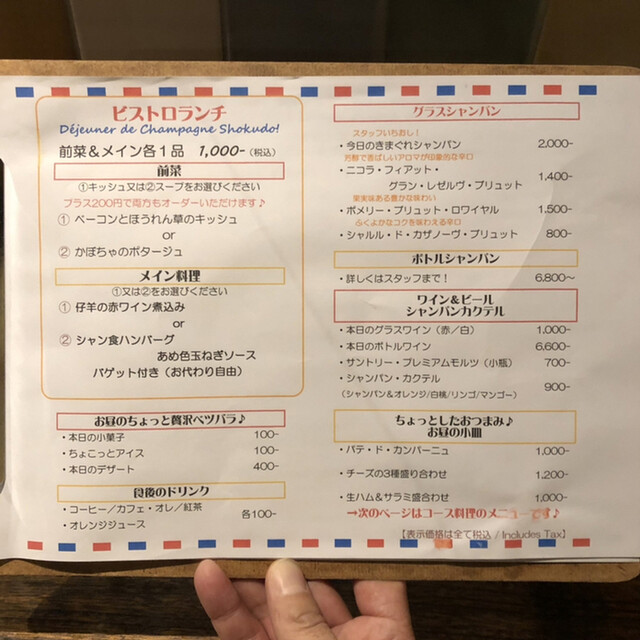 ビストロランチ
Déjeuner de Champagne Shokudo!
前菜＆メイン各１品 1,000-(税込)
前菜
①キッシュ又は②スープをお選びください
プラス200円で両方もオーダーいただけます♪
① ベーコンとほうれん草のキッシュ
or
② かぼちゃのポタージュ
メイン料理
①又は②をお選びください
① 仔羊の赤ワイン煮込み
or
② シャン食ハンバーグ
あめ色玉ねぎソース
バゲット付き（お代わり自由）
お昼のちょっと贅沢ベツバラ♪
・本日の小菓子 100-
・ちょこっとアイス 100-
・本日のデザート 400-
食後のドリンク
・コーヒー／カフェ・オレ／紅茶
・オレンジジュース 各100-
グラスシャンパン
スタッフいちおし！
・今日のきまぐれシャンパン 2,000-
芳醇で香ばしいアロマが印象的な辛口
・ニコラ・フィアット・
グラン・レゼルヴ・ブリュット 1,400-
果実味ある豊かな味わい
・ポメリー・ブリュット・ロワイヤル 1,500-
ふくよかなコクを味わえる辛口
・シャルル・ド・カザノーヴ・ブリュット 800-
ボトルシャンパン
・詳しくはスタッフまで！ 6,800～
ワイン＆ビール
シャンパンカクテル
・本日のグラスワイン（赤／白） 1,000-
・本日のボトルワイン 6,600-
・サントリー・プレミアムモルツ（小瓶） 700-
・シャンパン・カクテル
（シャンパン＆オレンジ/白桃/リンゴ/マンゴー） 900-
ちょっとしたおつまみ♪
お昼の小皿
・パテ・ド・カンパーニュ 1,000-
・チーズの３種盛り合わせ 1,200-
・生ハム＆サラミ盛合わせ 1,000-
→次のページはコース料理のメニューです♪
【表示価格は全て税込 / Includes Tax】